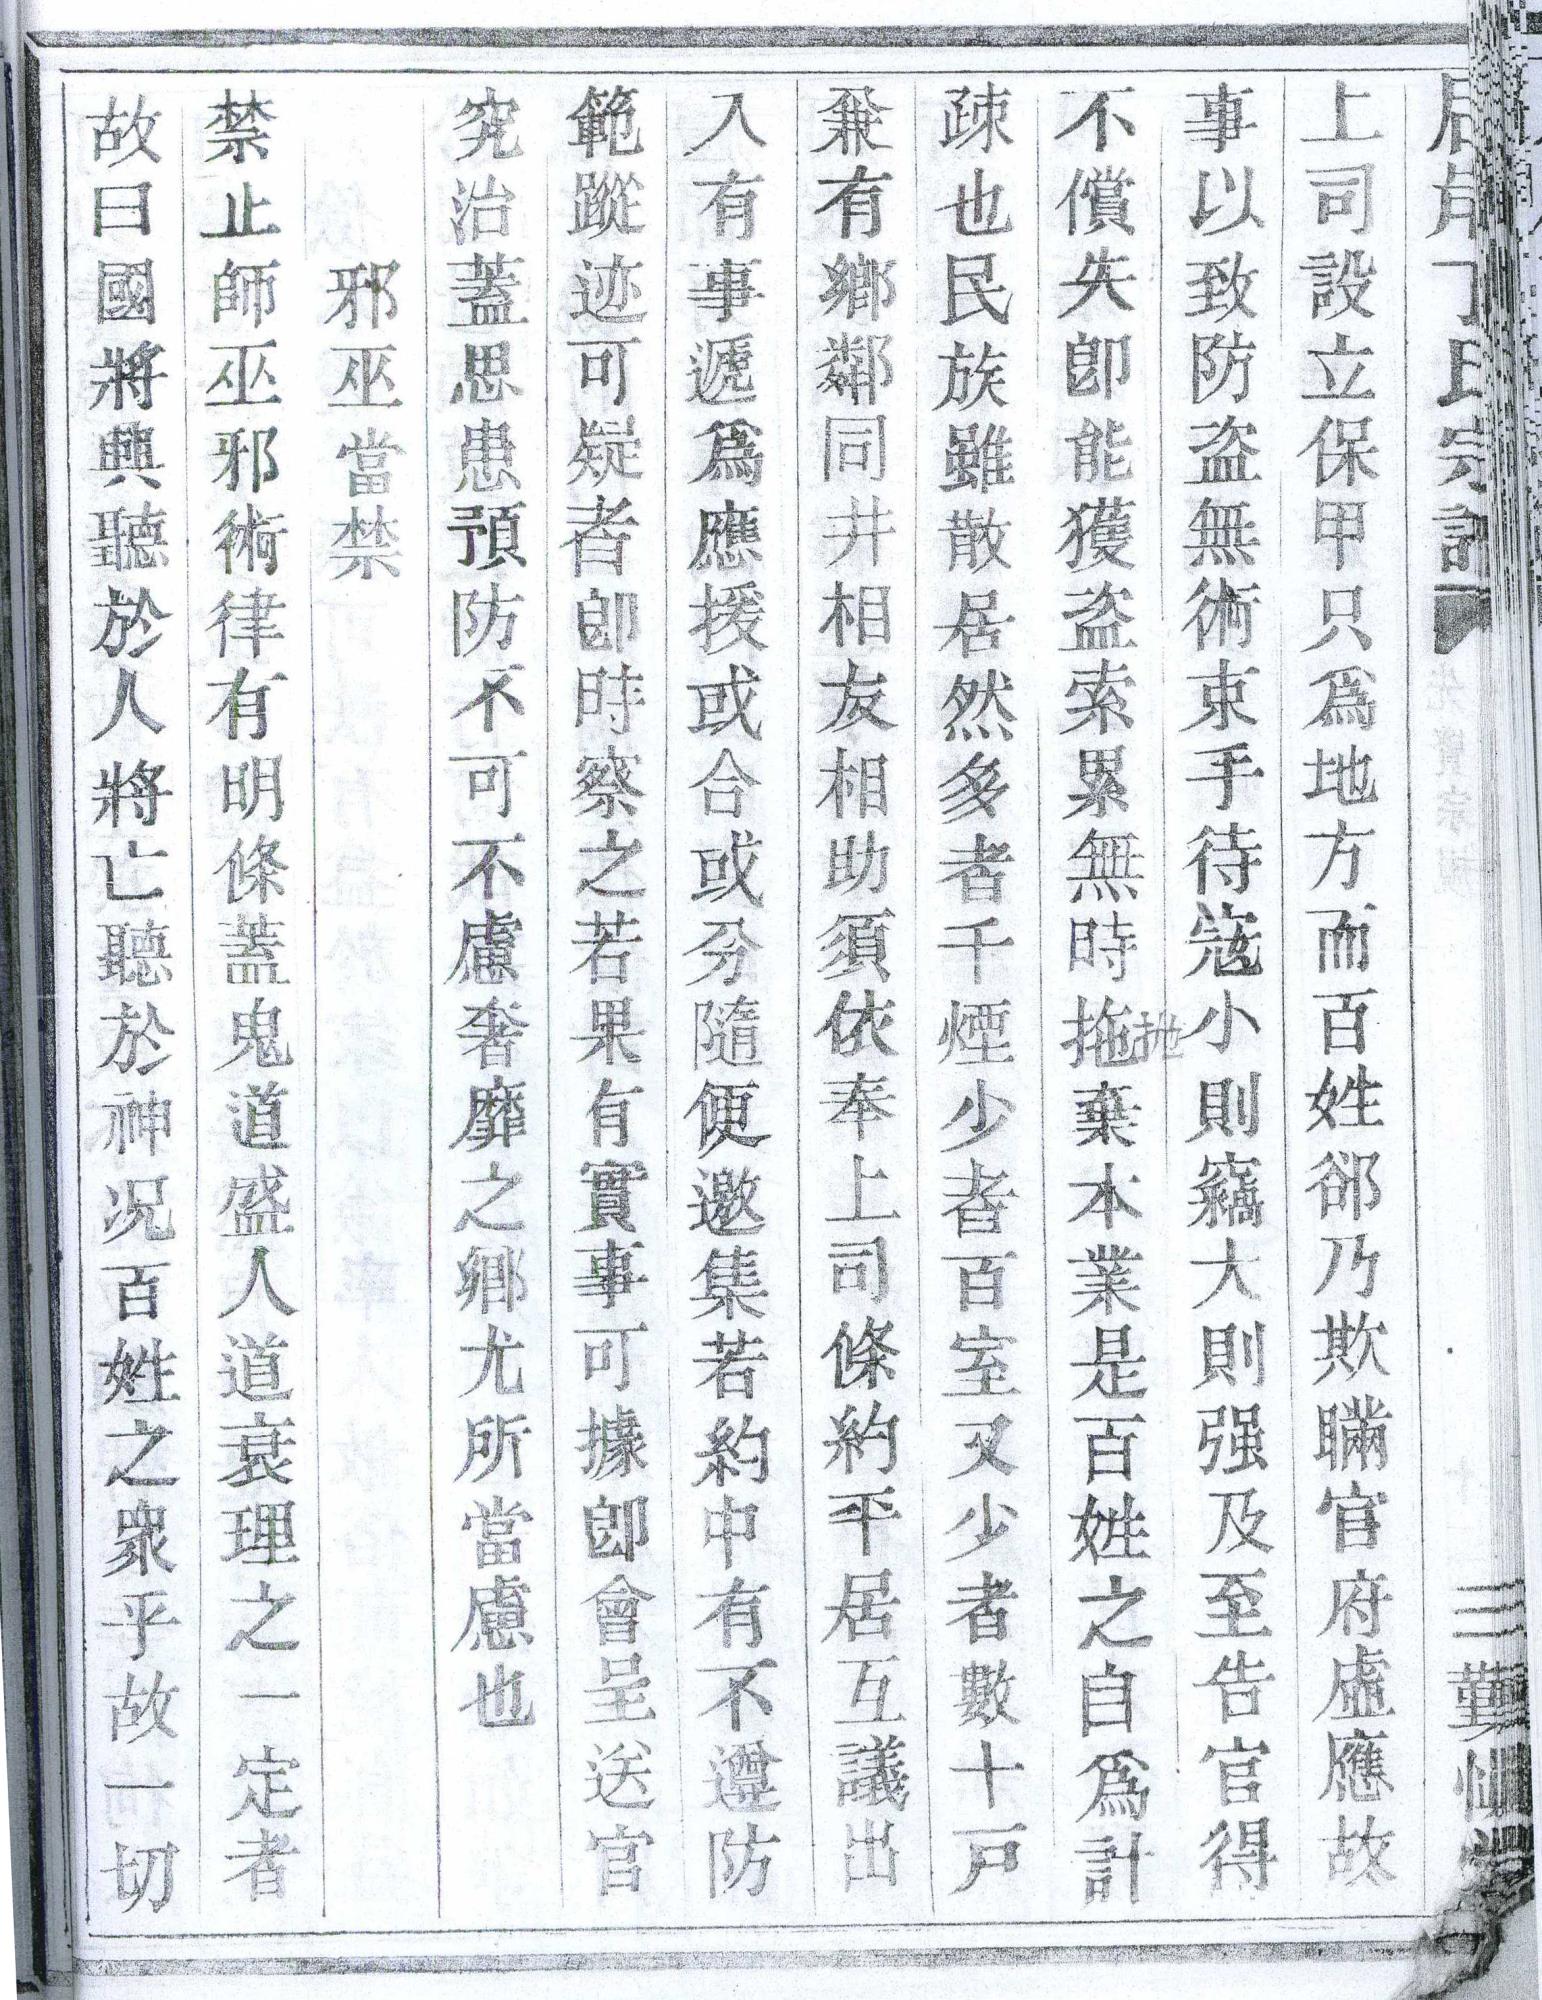 丁氏宗譜
三 勤
上司設立保甲只爲地方而百姓郤乃欺瞞官府虛應故
事以致防盜無術束手待寇小則竊大則强及至告官得
不償失卽能獲盜索累無時拖棄本業是百姓之自爲計
抛
疎也民族雖散居然多者千煙少者百室又少者數十戸
兼有鄉鄰同井相友相助須依奉上司條約平居互議出
入有事遞爲應援或合或分隨便邀集若約中有不遵防
範蹤迹可疑者卽時察之若果有實事可據卽會呈送官
究治蓋思患預防不可不慮奢靡之鄉尤所當慮也
邪巫當禁
禁止師巫邪術律有明條蓋鬼道盛人道衰理之一定者
故曰國將興聽於人將亡聽於神况百姓之衆乎故一切